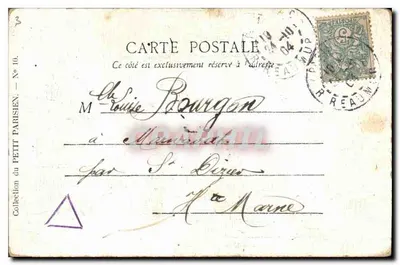 3
CARTE POSTALE
Ce côté est exclusivement réservé à l'adresse
Mlle Louise Bourgon
à
par St Dizier
Hte Marne
Collection du PETIT PARISIEN. — No 10.
24-10
04
R. REAUMUR